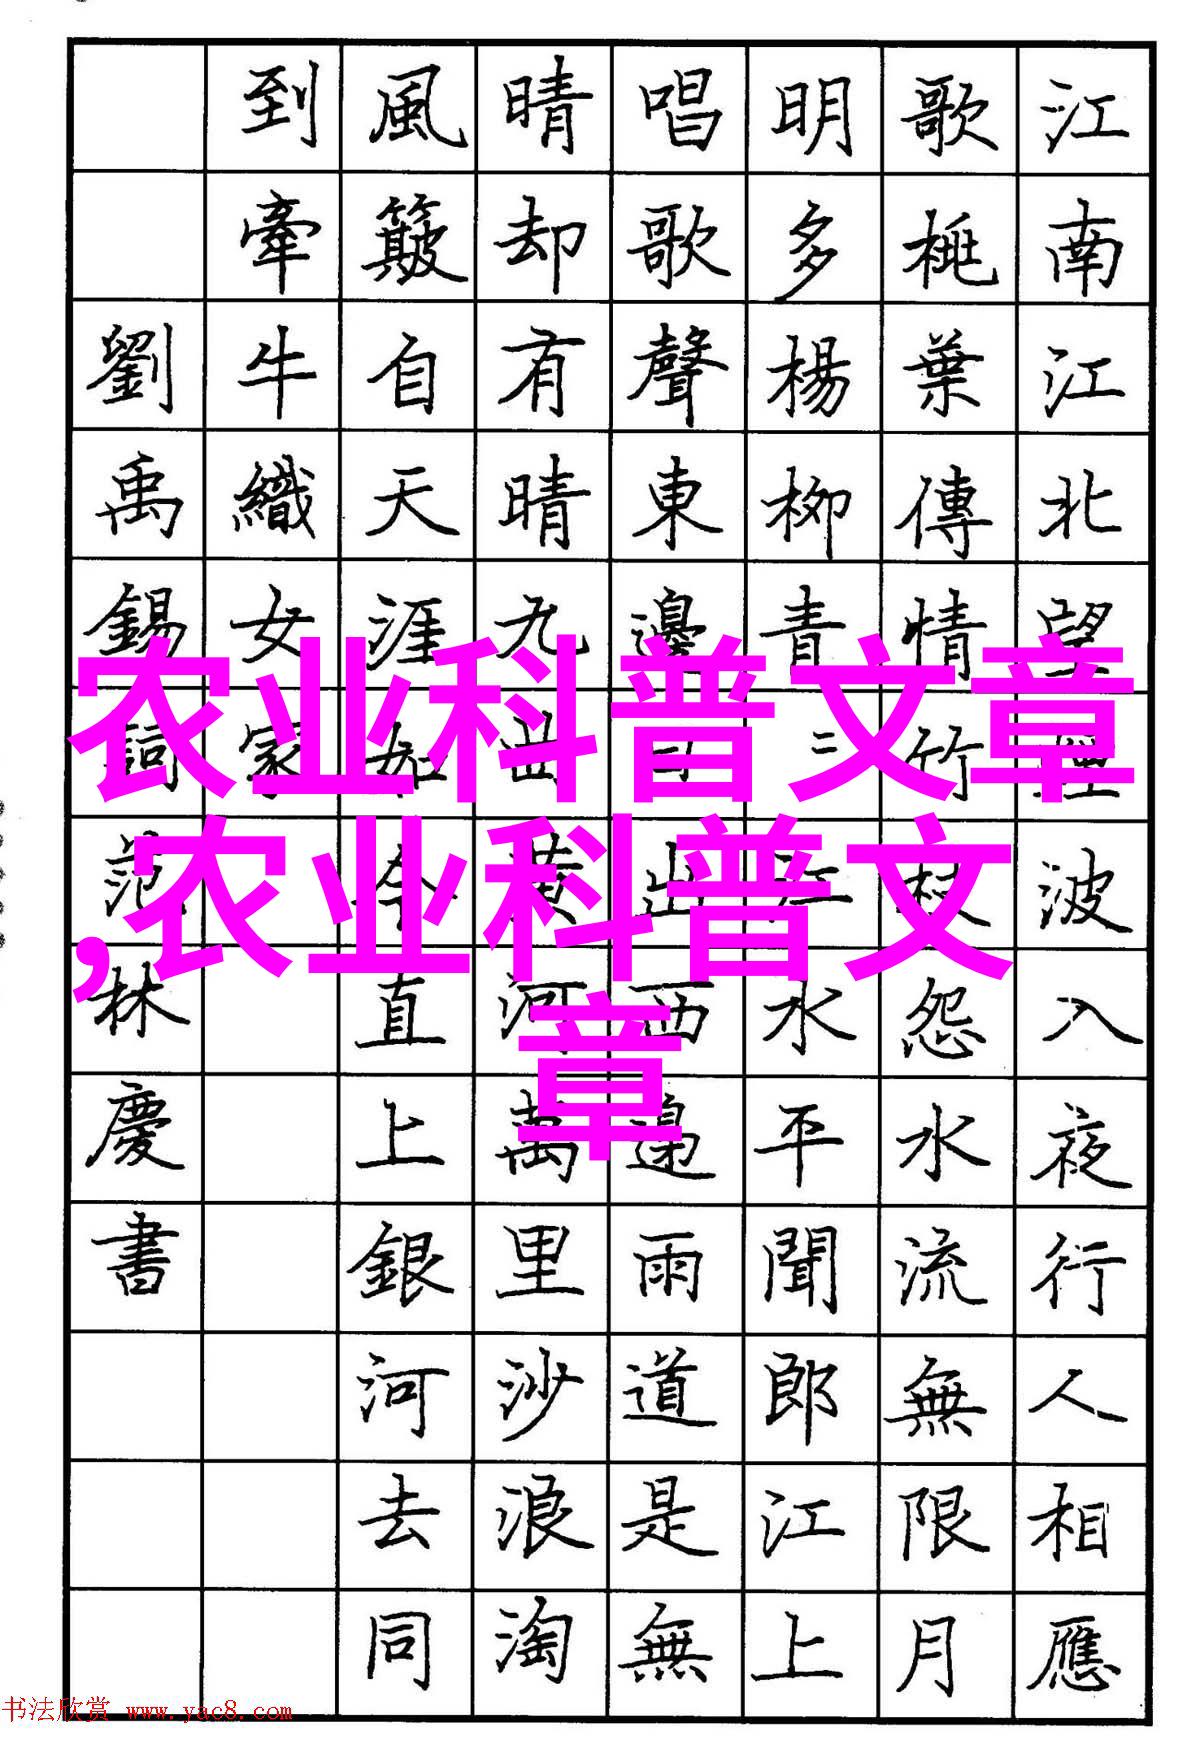 江南江北望煙波入夜行人相應
歌桃葉傳情竹枝怨水流無限月
明多楊柳青二江水平聞郎江上
唱歌聲東邊日出西邊雨道是無
晴却有晴九曲黄河萬里沙浪淘
風簸自天涯如今直上銀河去同
到牽牛織女家
劉禹錫詞范林慶書
农业科普文章
,农业科普文
章
书法欣赏 www.yac8.com